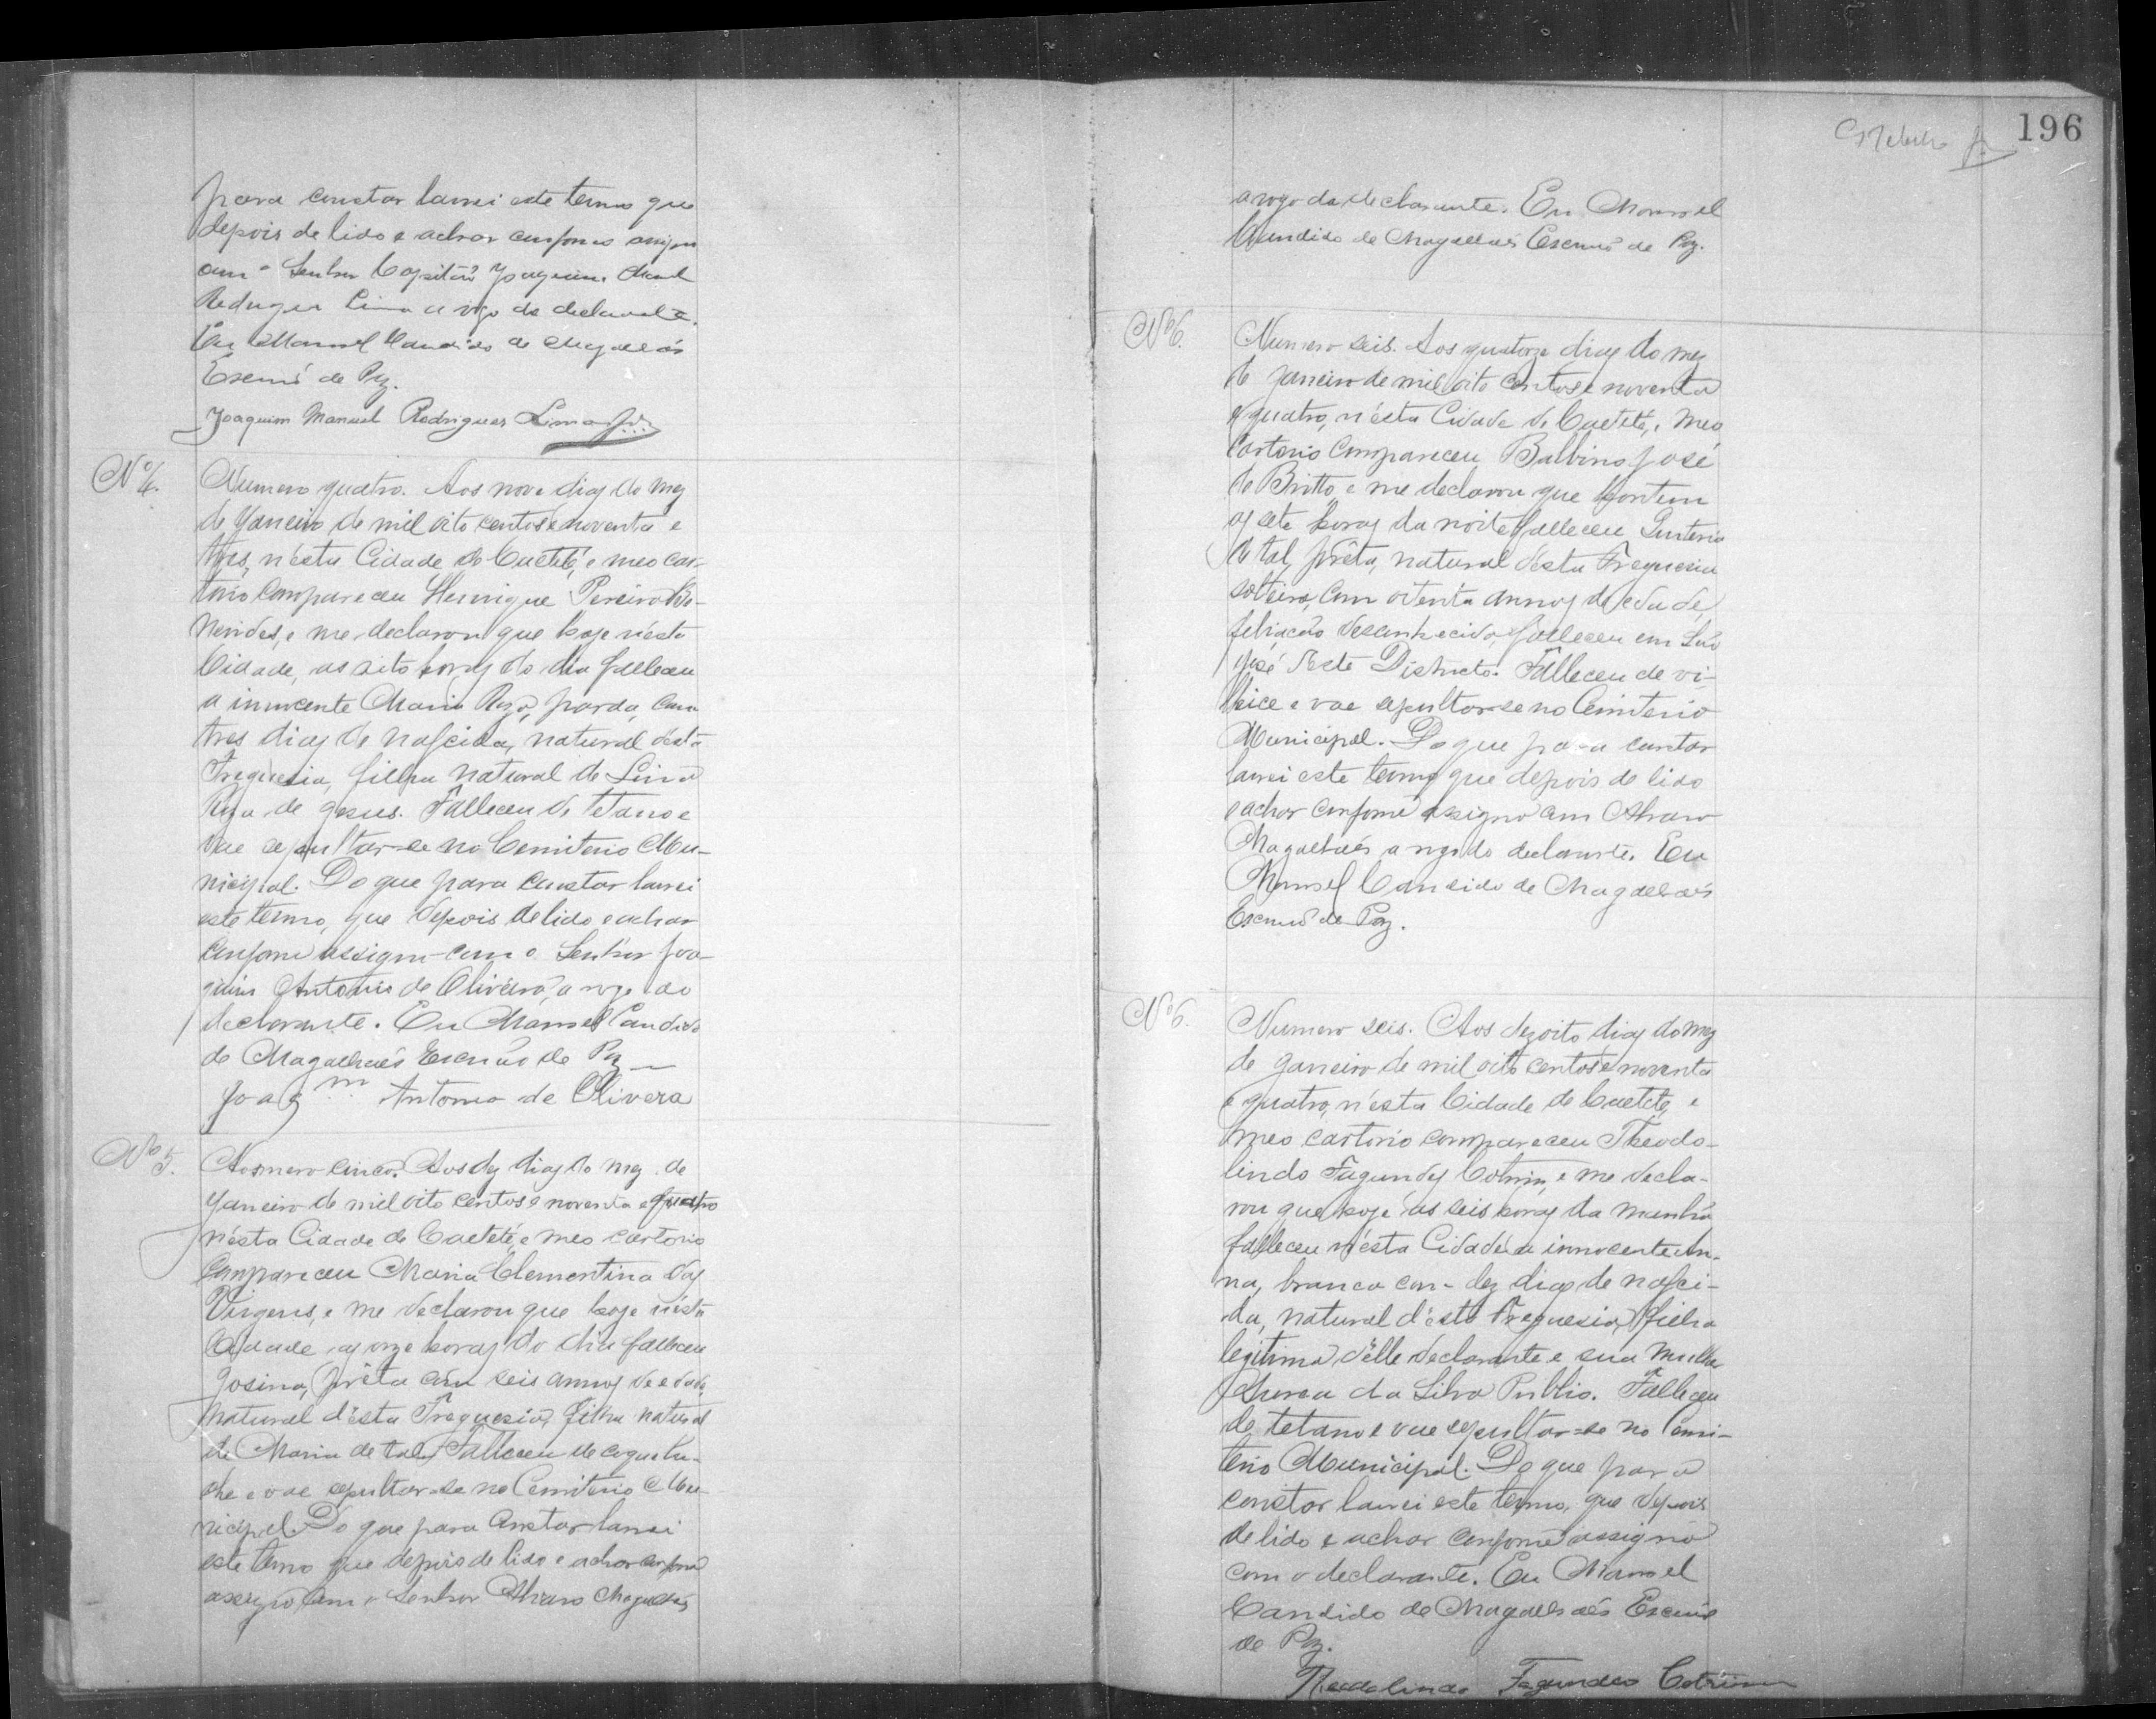 para constar lavrei este termo que
depois de lido e achar conforme assigno
com o Senhor Capitão Joaquim Manoel
Rodrigues Lima a rogo da declarante.
Eu Manoel Candido de Magalhães
Escrivão de Paz.
Joaquim Manuel Rodrigues Lima Jor.
Nº 4.
Numero quatro. Aos nove dias do mez
de Janeiro de mil oito centos e noventa e
tres, n'esta Cidade de Caetité, e meo car-
torio compareceu Henrique Pereira
e me declarou que hoje n'esta
Cidade, as oito horas do dia falleceu
a innocente Maria Roza, parda, com
tres dias de nascida, natural desta
Freguesia, filha natural de Lina
Roza de Jesus. Falleceu de tetano e
vae sepultar-se no Cemiterio Mu-
nicipal. Do que para constar lavrei
este termo, que depois de lido e achar
conforme assigno com o Senhor Joa-
quim Antonio de Oliveira, a rogo do
declarante. Eu Manoel Candido
de Magalhães Escrivão de Paz
Joaqm Antonio de Olivera
Nº 5.
Nosmero cinco. Aos dez dias do mez de
Janeiro de mil oito centos e noventa e quatro
n'esta Cidade de Caetité, e meo cartorio
compareceu Maria Clementina das
Virgens, e me declarou que hoje n'esta
Cidade, as onze horas do dia falleceu
Josina, prêta com seis annos de edade,
natural d'esta Freguezia, filha natural
de Maria de tal. Falleceu de coquelu-
che e vae sepultar-se no Cemiterio Mu-
nicipal. Do que para constar lavrei
este termo que depois de lido e achar conforme
assigno com o Senhor Alvaro Magalhães
196
a rogo da declarante. Eu Manoel
Candido de Magalhães Escrivão de Paz.
Nº 6.
Numero seis. Aos quatorze dias do mez
de Janeiro de mil oito centos e noventa
e quatro, n'esta Cidade de Caetité, e meo
Cartorio compareceu Balbino José
de Britto e me declarou que hontem
as sete horas da noite falleceu Quiteria
de tal, prêta, natural desta Freguesia
solteira, com oitenta annos de edade,
filiação desconhecida, falleceu em São
José deste Districto. Falleceu de vi-
lhice e vae sepultar-se no Cemiterio
Municipal. Do que para constar
lavrei este termo que depois de lido
e achar conforme assigno com Alvaro
Magalhães a rogo do declarante. Eu
Manoel Candido de Magalhães
Escrivão de Paz.
Nº 6.
Numero seis. Aos dezoito dias do mez
de Janeiro de mil oito centos e noventa
e quatro, n'esta Cidade de Caetité, e
meo cartorio compareceu Theodo-
lindo Fagundes Cotrim, e me decla-
rou que hoje as seis horas da manhã
falleceu n'esta Cidade a innocente An-
na, branca com dez dias de nasci-
da, natural d'esta Freguesia, filha
legitima d'elle declarante e sua mulher
da Silva Publio. Falleceu
de tetano e vae sepultar-se no Cemi-
terio Municipal. Do que para
constar lavrei este termo, que depois
de lido e achar conforme assigno
com o declarante. Eu Manoel
Candido de Magalhães Escrivão
de Paz.
Theodolindo Fagundes Cotrim